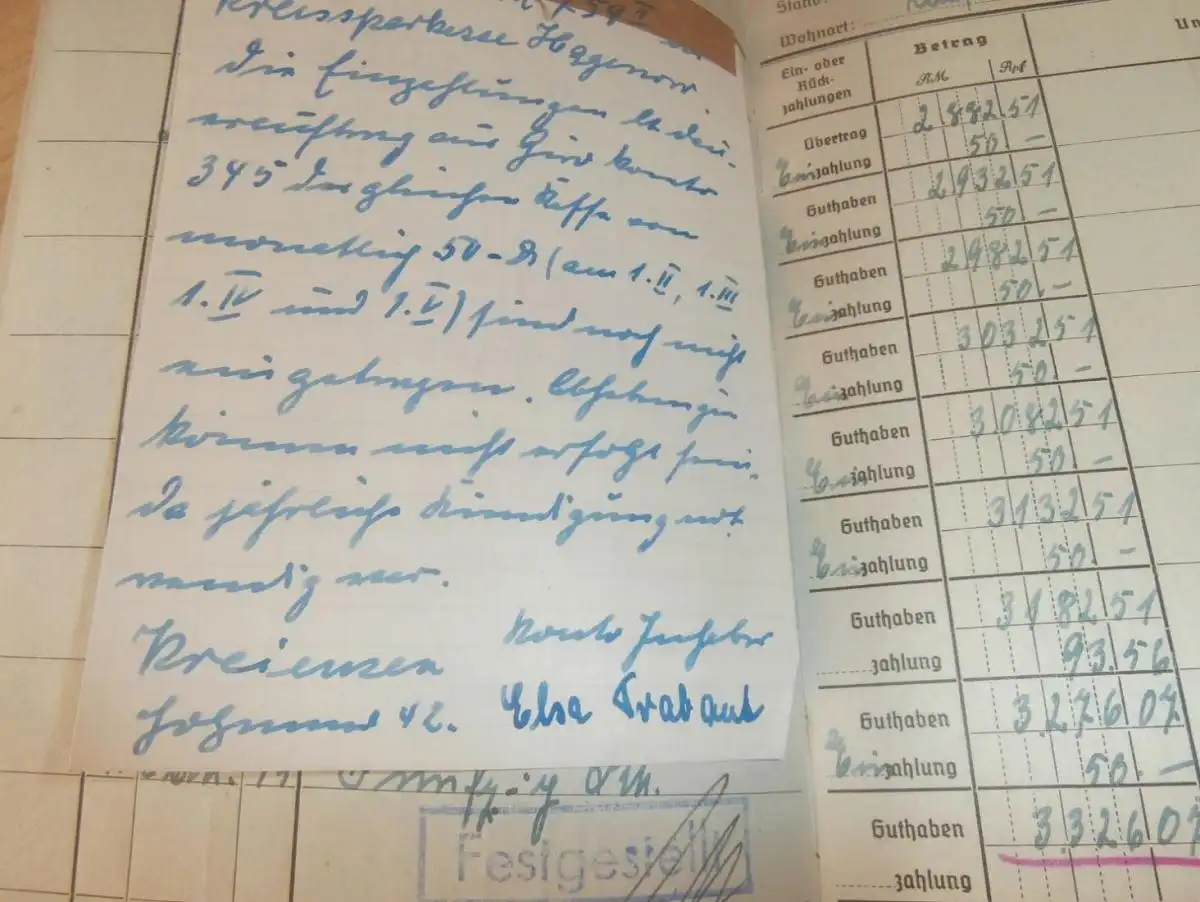 Kreissparkasse Hagenow.
Die Einzahlungen lt. Dau-
erauftrag aus Giro Konto
345 der gleichen Kasse von
monatlich 50-RM (am 1.II, 1.III
1.IV und 1.V) sind noch nicht
eingetragen. Abhebungen
können nicht erfolgt sein,
da jährliche Kündigung not-
wendig war.
Konto Inhaber
Kreiensen
Elsa Trabant
42.
Fünfzig RM.
Festgestellt
Stand:
Wohnort:
Ein- oder
Rück-
zahlungen
Betrag
RM Rpf
Übertrag 2 882 51
Einzahlung 50.-
Guthaben 2 932 51
Einzahlung 50 -
Guthaben 2 982 51
Einzahlung 50.-
Guthaben 3 032 51
Einzahlung 50.-
Guthaben 3.082 51
Einzahlung 50.-
Guthaben 3 132 51
Einzahlung 50.-
Guthaben 3 182 51
zahlung 93.56
Guthaben 3.276 07
Einzahlung 50.-
Guthaben 3.326 07
zahlung